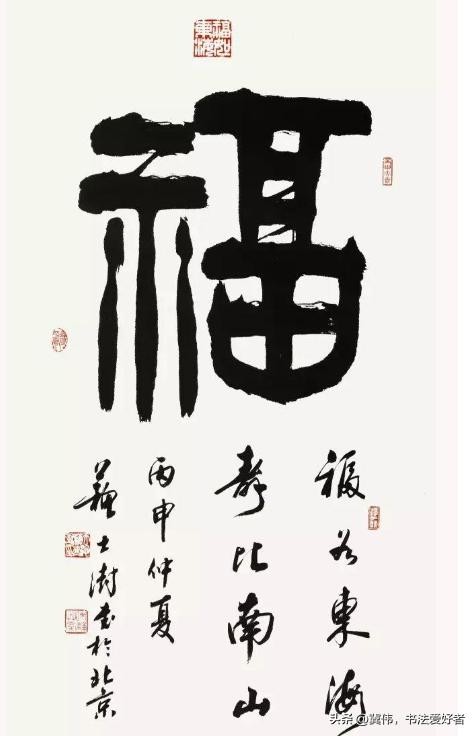 福如東海
福
福若東海
壽比南山
丙申仲夏
蘇士澍書於北京
头条 @冀伟，书法爱好者